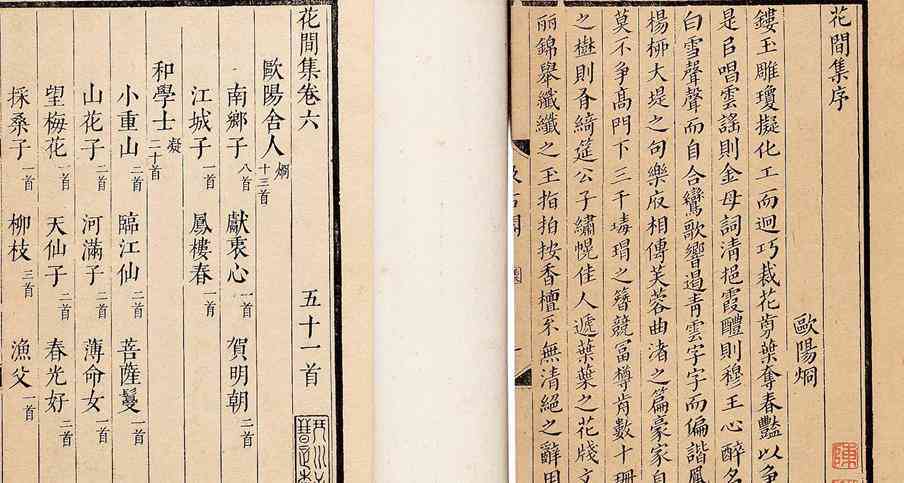 花間集序
歐陽烱
鏤玉雕瓊擬化工而迥巧裁花剪葉奪春豔以爭
是㠯唱雲謠則金母詞清挹霞醴則穆王心醉名
白雪聲聲而自合鸞歌響遏青雲字字而偏諧鳳
楊桺大堤之句樂府相傳芙蓉曲渚之篇豪家自
莫不爭高門下三千瑇瑁之簪競富樽前數十珊
之樹則有綺筵公子繡幌佳人遞葉葉之花牋文
麗錦舉纖纖之玉指拍按香檀不無清絕之辭用
陳
花間集卷六 五十一首
歐陽舍人烱十三首
南鄉子八首 獻衷心一首 賀明朝二首
江城子一首 鳳樓春一首
和學士凝二十首
小重山二首 臨江仙二首 菩薩蠻一首
山花子二首 河滿子二首 薄命女一首
望梅花一首 天仙子二首 春光好二首
採桑子一首 柳枝三首 漁父一首